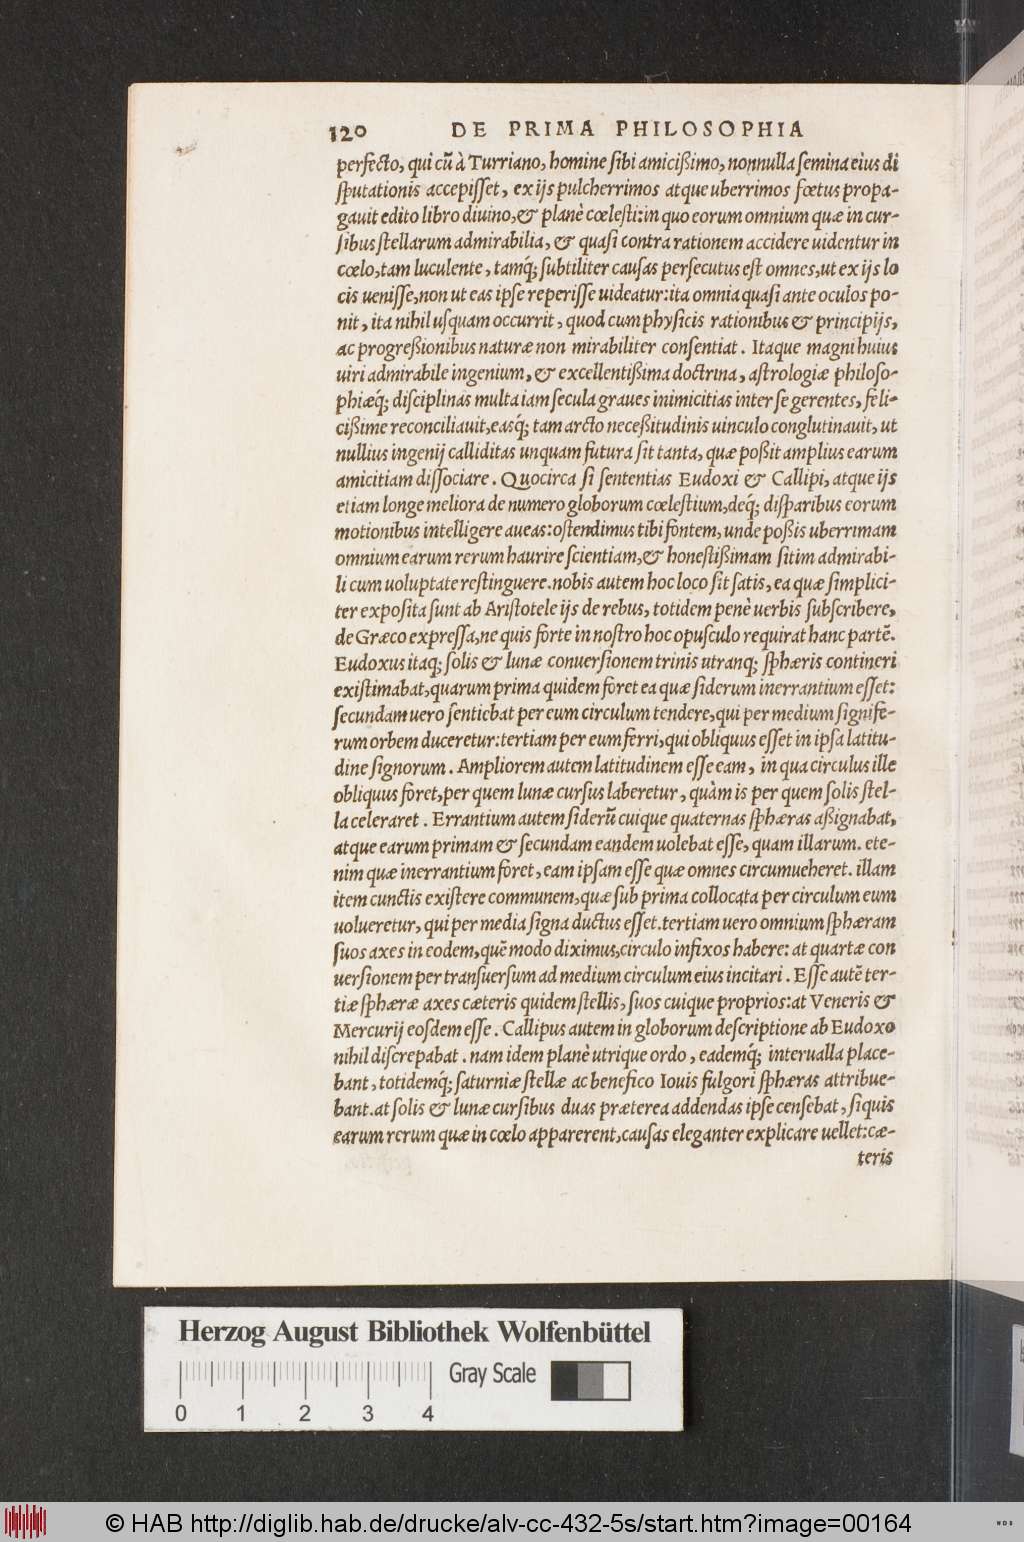 120 DE PRIMA PHILOSOPHIA
perfecto, qui cũ à Turriano, homine sibi amicißimo, nonnulla semina eius di
sputationis accepisset, ex ijs pulcherrimos atque uberrimos fœtus propa-
gauit edito libro diuino, & planè cœlesti: in quo eorum omnium quæ in cur-
sibus stellarum admirabilia, & quasi contra rationem accidere uidentur in
cœlo, tam luculente, tamq́; subtiliter causas persecutus est omnes, ut ex ijs lo
cis uenisse, non ut eas ipse reperisse uideatur: ita omnia quasi ante oculos po-
nit, ita nihil usquam occurrit, quod cum physicis rationibus & principijs,
ac progreßionibus naturæ non mirabiliter consentiat. Itaque magni huius
uiri admirabile ingenium, & excellentißima doctrina, astrologiæ philoso-
phiæq́; disciplinas multa iam secula graues inimicitias inter se gerentes, feli-
cißime reconciliauit, easq́; tam arcto neceßitudinis uinculo conglutinauit, ut
nullius ingenij calliditas unquam futura sit tanta, quæ poßit amplius earum
amicitiam dissociare. Quocirca si sententias Eudoxi & Callipi, atque ijs
etiam longe meliora de numero globorum cœlestium, deq́; disparibus eorum
motionibus intelligere aueas: ostendimus tibi fontem, unde poßis uberrimam
omnium earum rerum haurire scientiam, & honestißimam sitim admirabi-
li cum uoluptate restinguere. nobis autem hoc loco sit satis, ea quæ simplici-
ter exposita sunt ab Aristotele ijs de rebus, totidem penè uerbis subscribere,
de Græco expressa, ne quis forte in nostro hoc opusculo requirat hanc partẽ.
Eudoxus itaq; solis & lunæ conuersionem trinis utranq; sphæris contineri
existimabat, quarum prima quidem foret ea quæ siderum inerrantium esset:
secundam uero sentiebat per eum circulum tendere, qui per medium signife-
rum orbem duceretur: tertiam per eum ferri, qui obliquus esset in ipsa latitu-
dine signorum. Ampliorem autem latitudinem esse eam, in qua circulus ille
obliquus foret, per quem lunæ cursus laberetur, quàm is per quem solis stel-
la celeraret. Errantium autem siderũ cuique quaternas sphæras aßignabat,
atque earum primam & secundam eandem uolebat esse, quam illarum. ete-
nim quæ inerrantium foret, eam ipsam esse quæ omnes circumueheret. illam
item cunctis existere communem, quæ sub prima collocata per circulum eum
uolueretur, qui per media signa ductus esset. tertiam uero omnium sphæram
suos axes in eodem, quẽ modo diximus, circulo infixos habere: at quartæ con
uersionem per transuersum ad medium circulum eius incitari. Esse autẽ ter-
tiæ sphæræ axes cæteris quidem stellis, suos cuique proprios: at Veneris &
Mercurij eosdem esse. Callipus autem in globorum descriptione ab Eudoxo
nihil discrepabat. nam idem planè utrique ordo, eademq́; interualla place-
bant, totidemq́; saturniæ stellæ ac benefico Iouis fulgori sphæras attribue-
bant. at solis & lunæ cursibus duas præterea addendas ipse censebat, si quis
earum rerum quæ in cœlo apparerent, causas eleganter explicare uellet: cæ-
teris
Herzog August Bibliothek Wolfenbüttel
Gray Scale
0 1 2 3 4
© HAB http://diglib.hab.de/drucke/alv-cc-432-5s/start.htm?image=00164